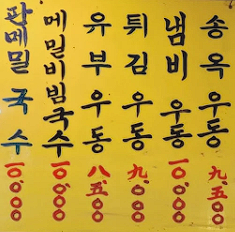 송옥우동 九,五〇〇
냄비우동 一〇,〇〇〇
튀김우동 九,〇〇〇
유부우동 八,五〇〇
메밀비빔국수 一〇,〇〇〇
판메밀국수 一〇,〇〇〇